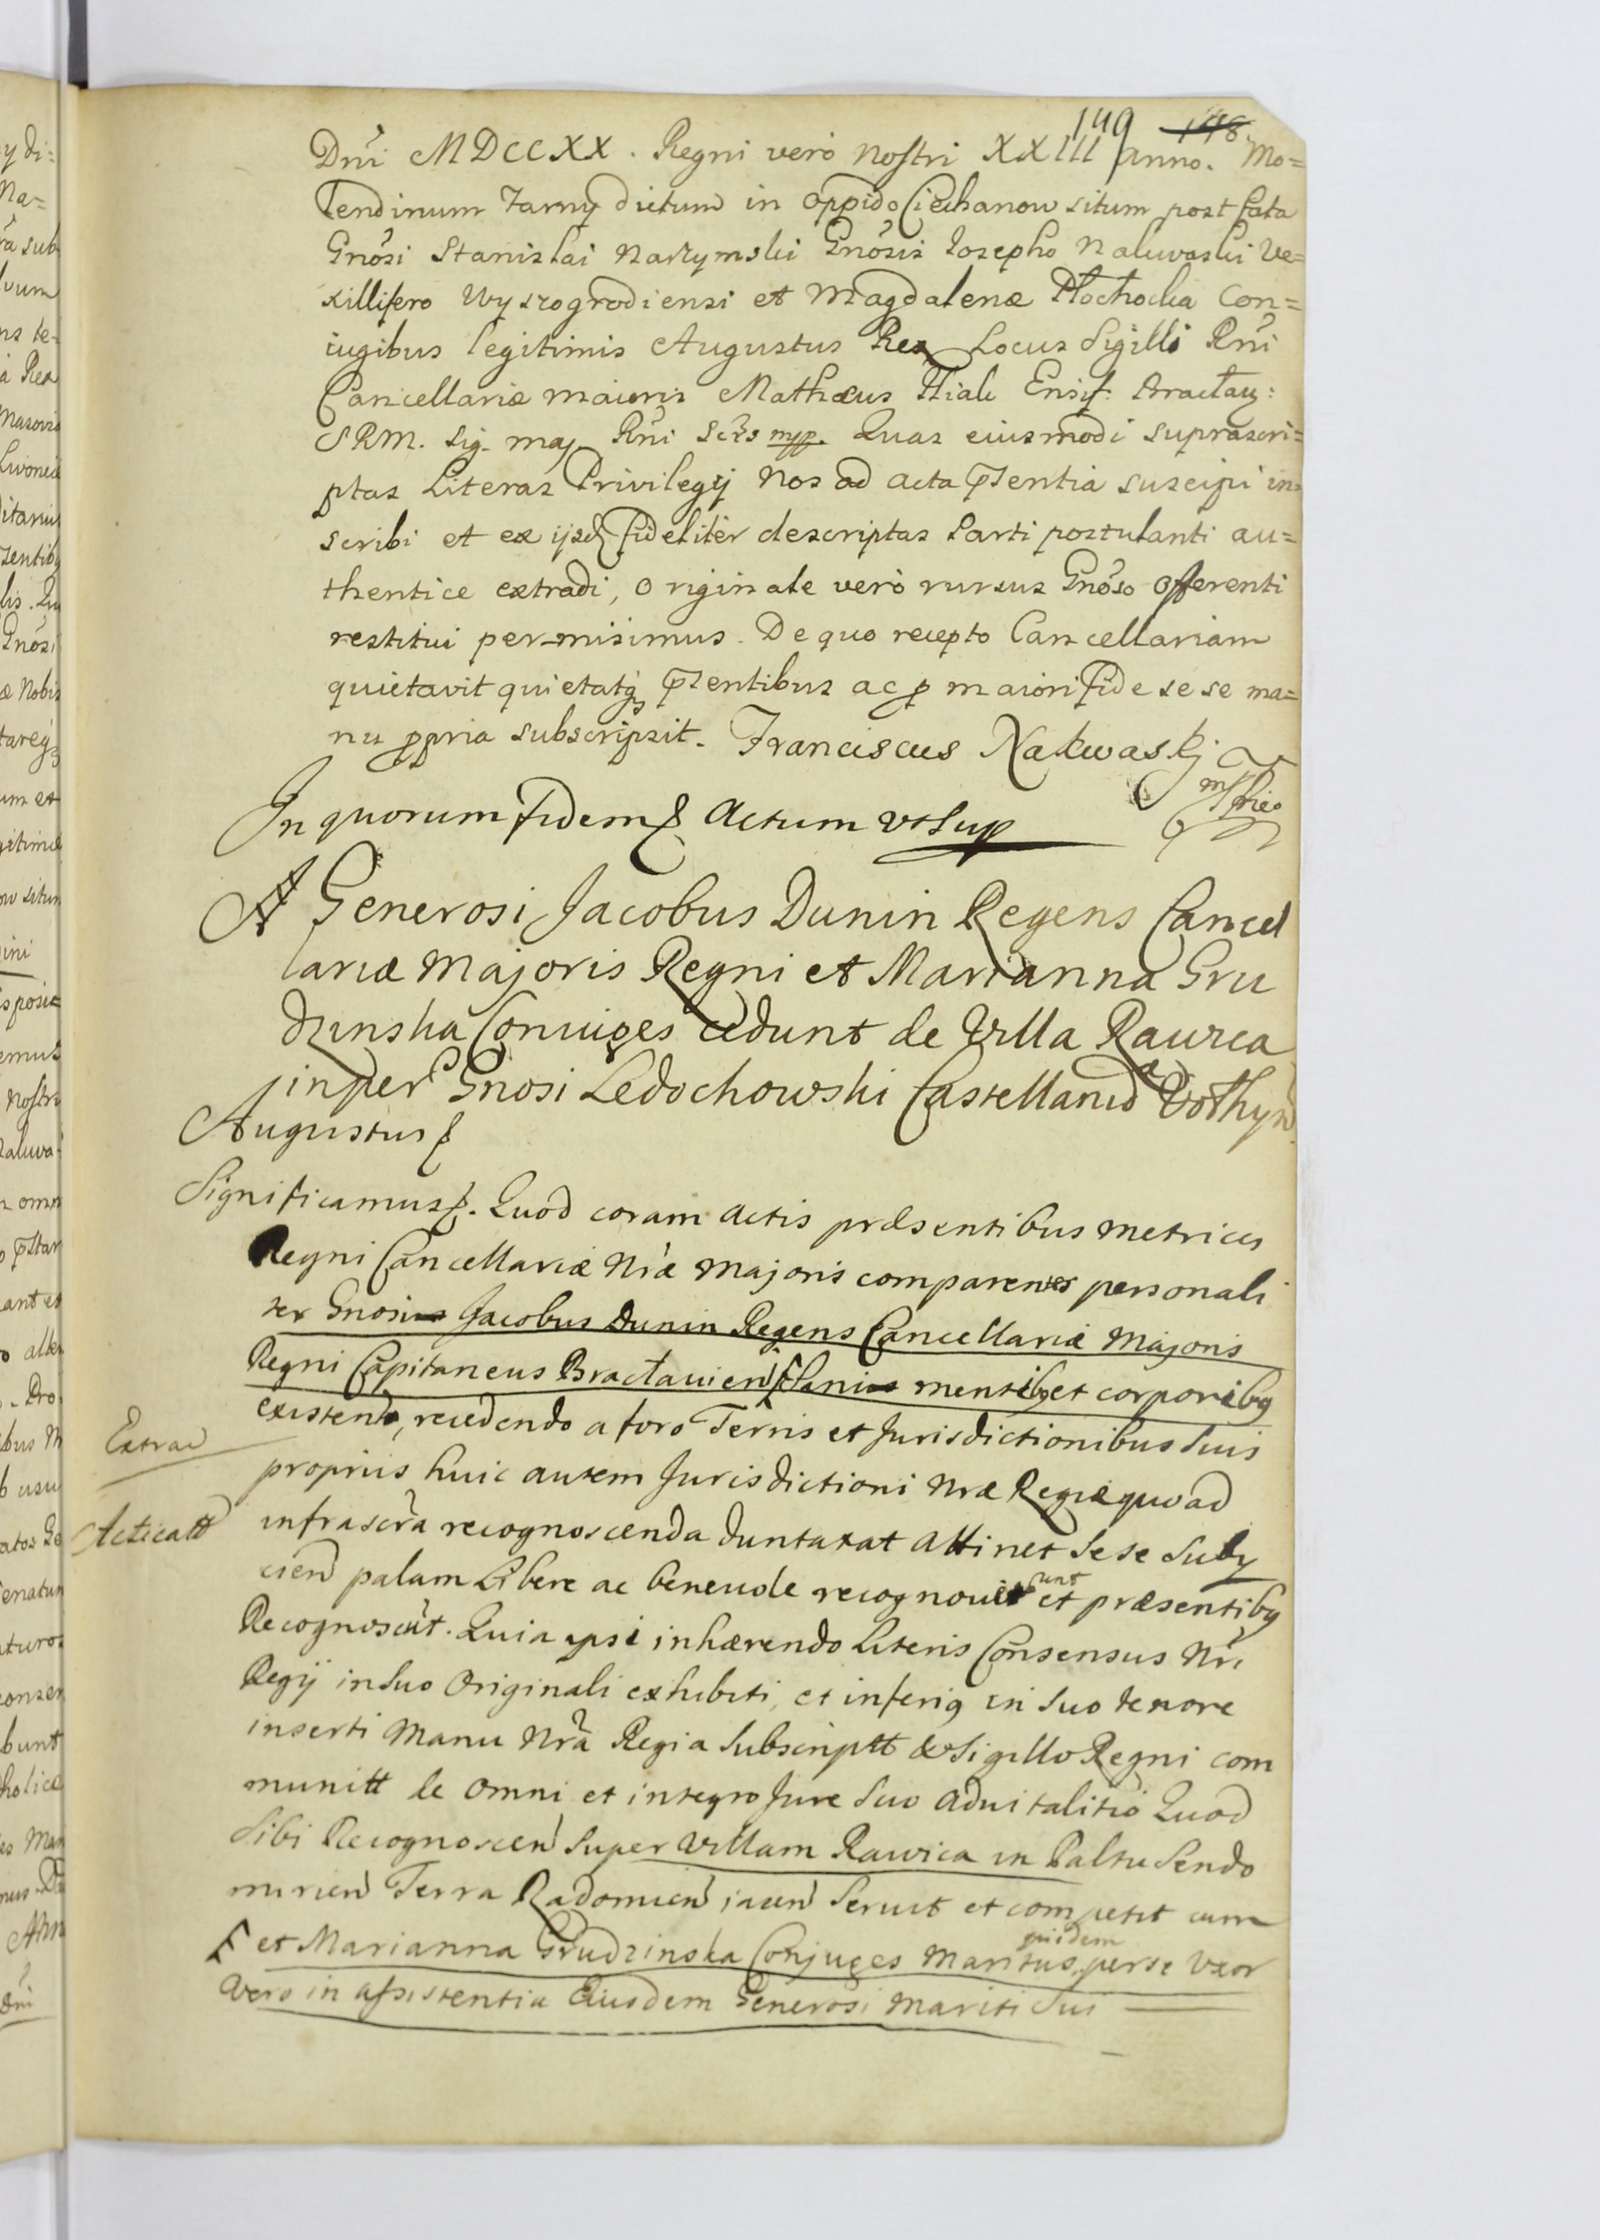 149 148.
Dńi MDCCXX. Regni verò nostri XXIII Anno. Mo=
lendinum Tarny dictum in oppido Ciechanow situm post fata
Gnósi Stanislai Narzymski Gnósis Iosepho Nakwaski Ve=
xillifero Wyszogrodiensi et Magdalenæ Płochocka Con=
iugibus legitimis Augustus Rex Locus Sigilli Rńi
Cancellariæ maioris Mathæus Ensif: Bracław:
SRM. Sig. maj Rńi Scr̃s mpp. Quas eiusmodi suprascri=
ptas Literas Privilegij Nos ad acta p̃sentia suscipi in=
scribi et ex ijsd fideliter descriptas Parti postulanti au=
thentice extradi, originale verò rursus Gnóso offerenti
restitui permisimus. De quo recepto Cancellariam
quietavit quietatq p̃sentibus ac p maiori fide se se ma=
nu ppria subscripsit. Franciscus Nakwaski
mp
In quorum fidem Actum vt Sup
A Generosi Jacobus Dunin Regens Cancel
lariæ Majoris Regni et Marianna Gru
dzinska Coniuges cedunt de Villa Rawica
in per Gnosi Ledochowski Castellani Vołhyn
Augustus
Significamus. Quod coram Actis præsentibus Metrices
Regni Cancellariæ Nr̃æ Majoris comparentes personali
ter Gnosi Jacobus Dunin Regens Cancellariæ Majoris
Regni Capitaneus Bracłauien Sani mentibq et corporibq
existend, recedendo a foro Terris et Jurisdictionibus Suis
Extrad
proprijs huic autem Jurisdictioni Nræ Regiæ quoad
Acticatt
infrascr̃a recognoscenda duntaxat attinet Se se Subij
cien palam Libere ac beneuole recognouerunt et præsentibq
Recognoscũt. Quia ipsi inhærendo Literis Consensus Nr̃i
Regij in Suo Originali exhibiti, et inferiq in Suo tenore
inserti Manu Nr̃a Regia Subscriptt & Sigillo Regni com
munitt de Omni et integro Jure Suo Aduitalitio Quod
Sibi Recognoscen Super Villam Rawica in Paltu Sendo
mirien Terra Radomien iacen Seruit et competit cum
et Marianna Grudzinska Conjuges Maritus quidem per se Vxor
Vero in assistentia Eiusdem Generosi Mariti Sui